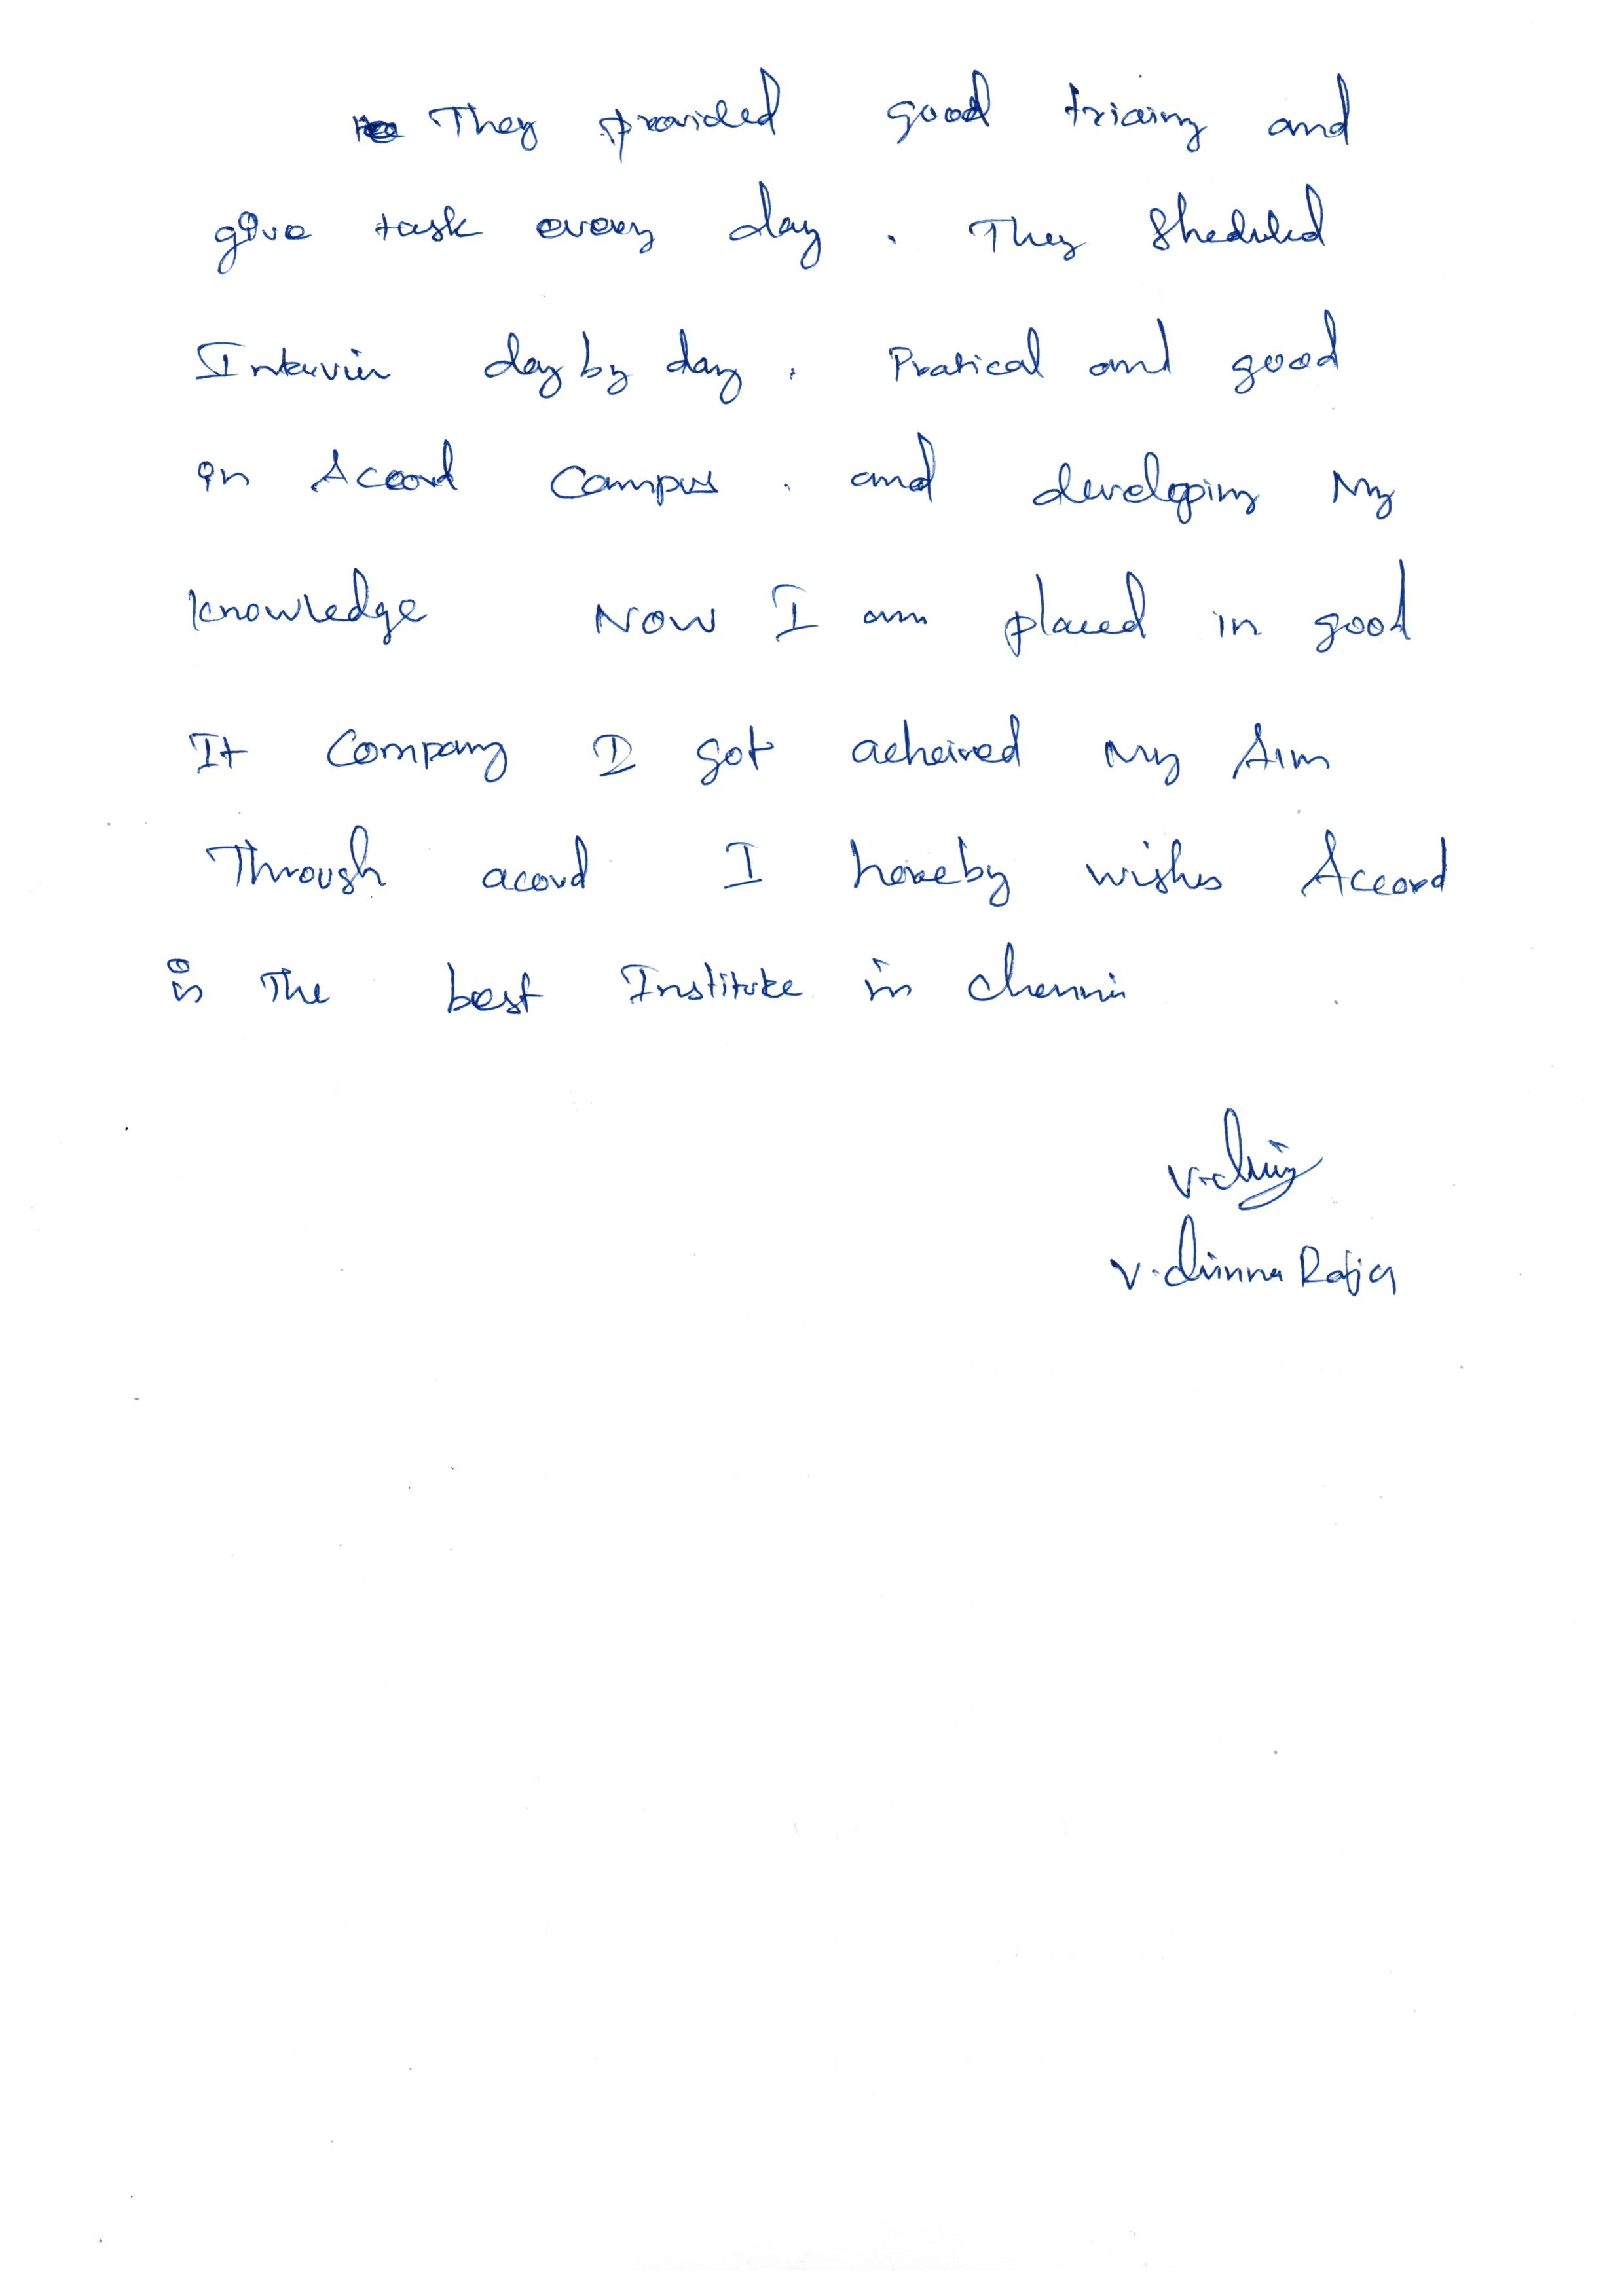 They provided good triaing and
give task every day. They Sheduled
Interviw day by day. Pratical and good
in Accord Campus. and developing My
knowledge Now I am placed in good
It Company I got acheived My Aim
Through acord I hereby wishes Accord
is The best Institute in chennai
V. Chinna Raja